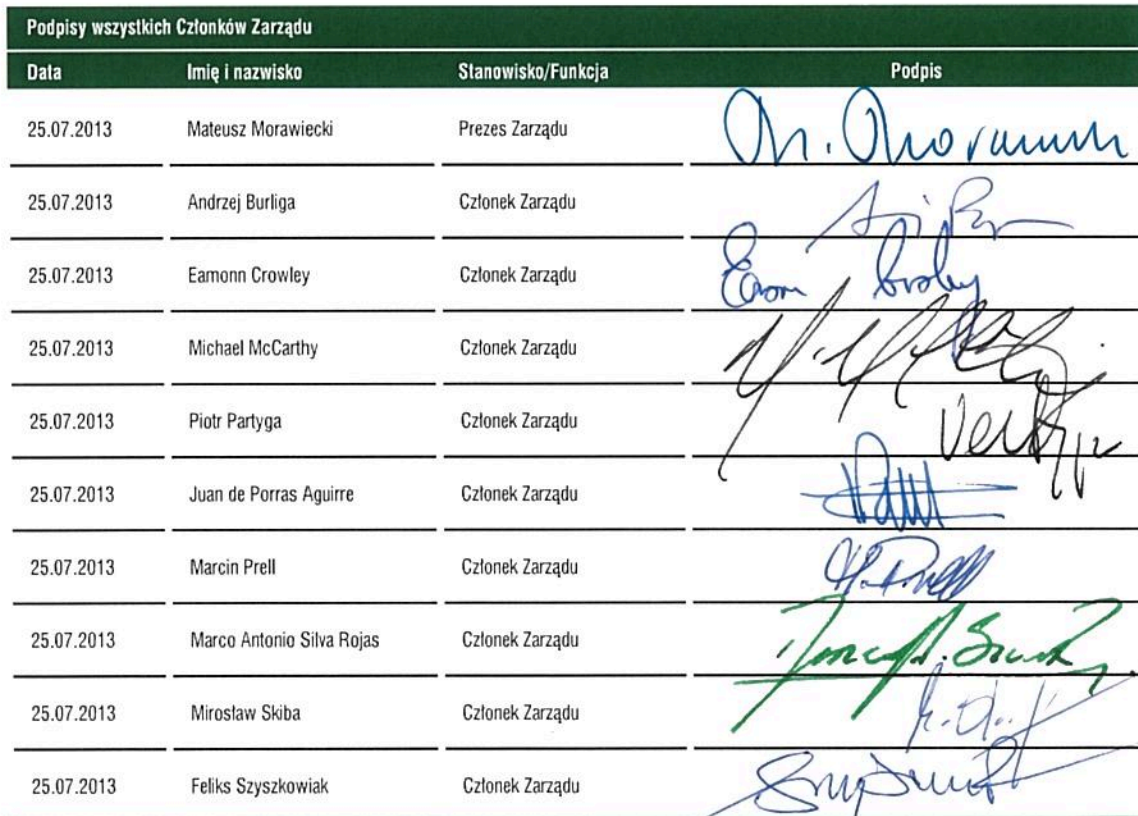 Podpisy wszystkich Członków Zarządu
Data Imię i nazwisko Stanowisko/Funkcja Podpis
25.07.2013 Mateusz Morawiecki Prezes Zarządu
25.07.2013 Andrzej Burliga Członek Zarządu
25.07.2013 Eamonn Crowley Członek Zarządu
25.07.2013 Michael McCarthy Członek Zarządu
25.07.2013 Piotr Partyga Członek Zarządu
25.07.2013 Juan de Porras Aguirre Członek Zarządu
25.07.2013 Marcin Prell Członek Zarządu
25.07.2013 Marco Antonio Silva Rojas Członek Zarządu
25.07.2013 Mirosław Skiba Członek Zarządu
25.07.2013 Feliks Szyszkowiak Członek Zarządu